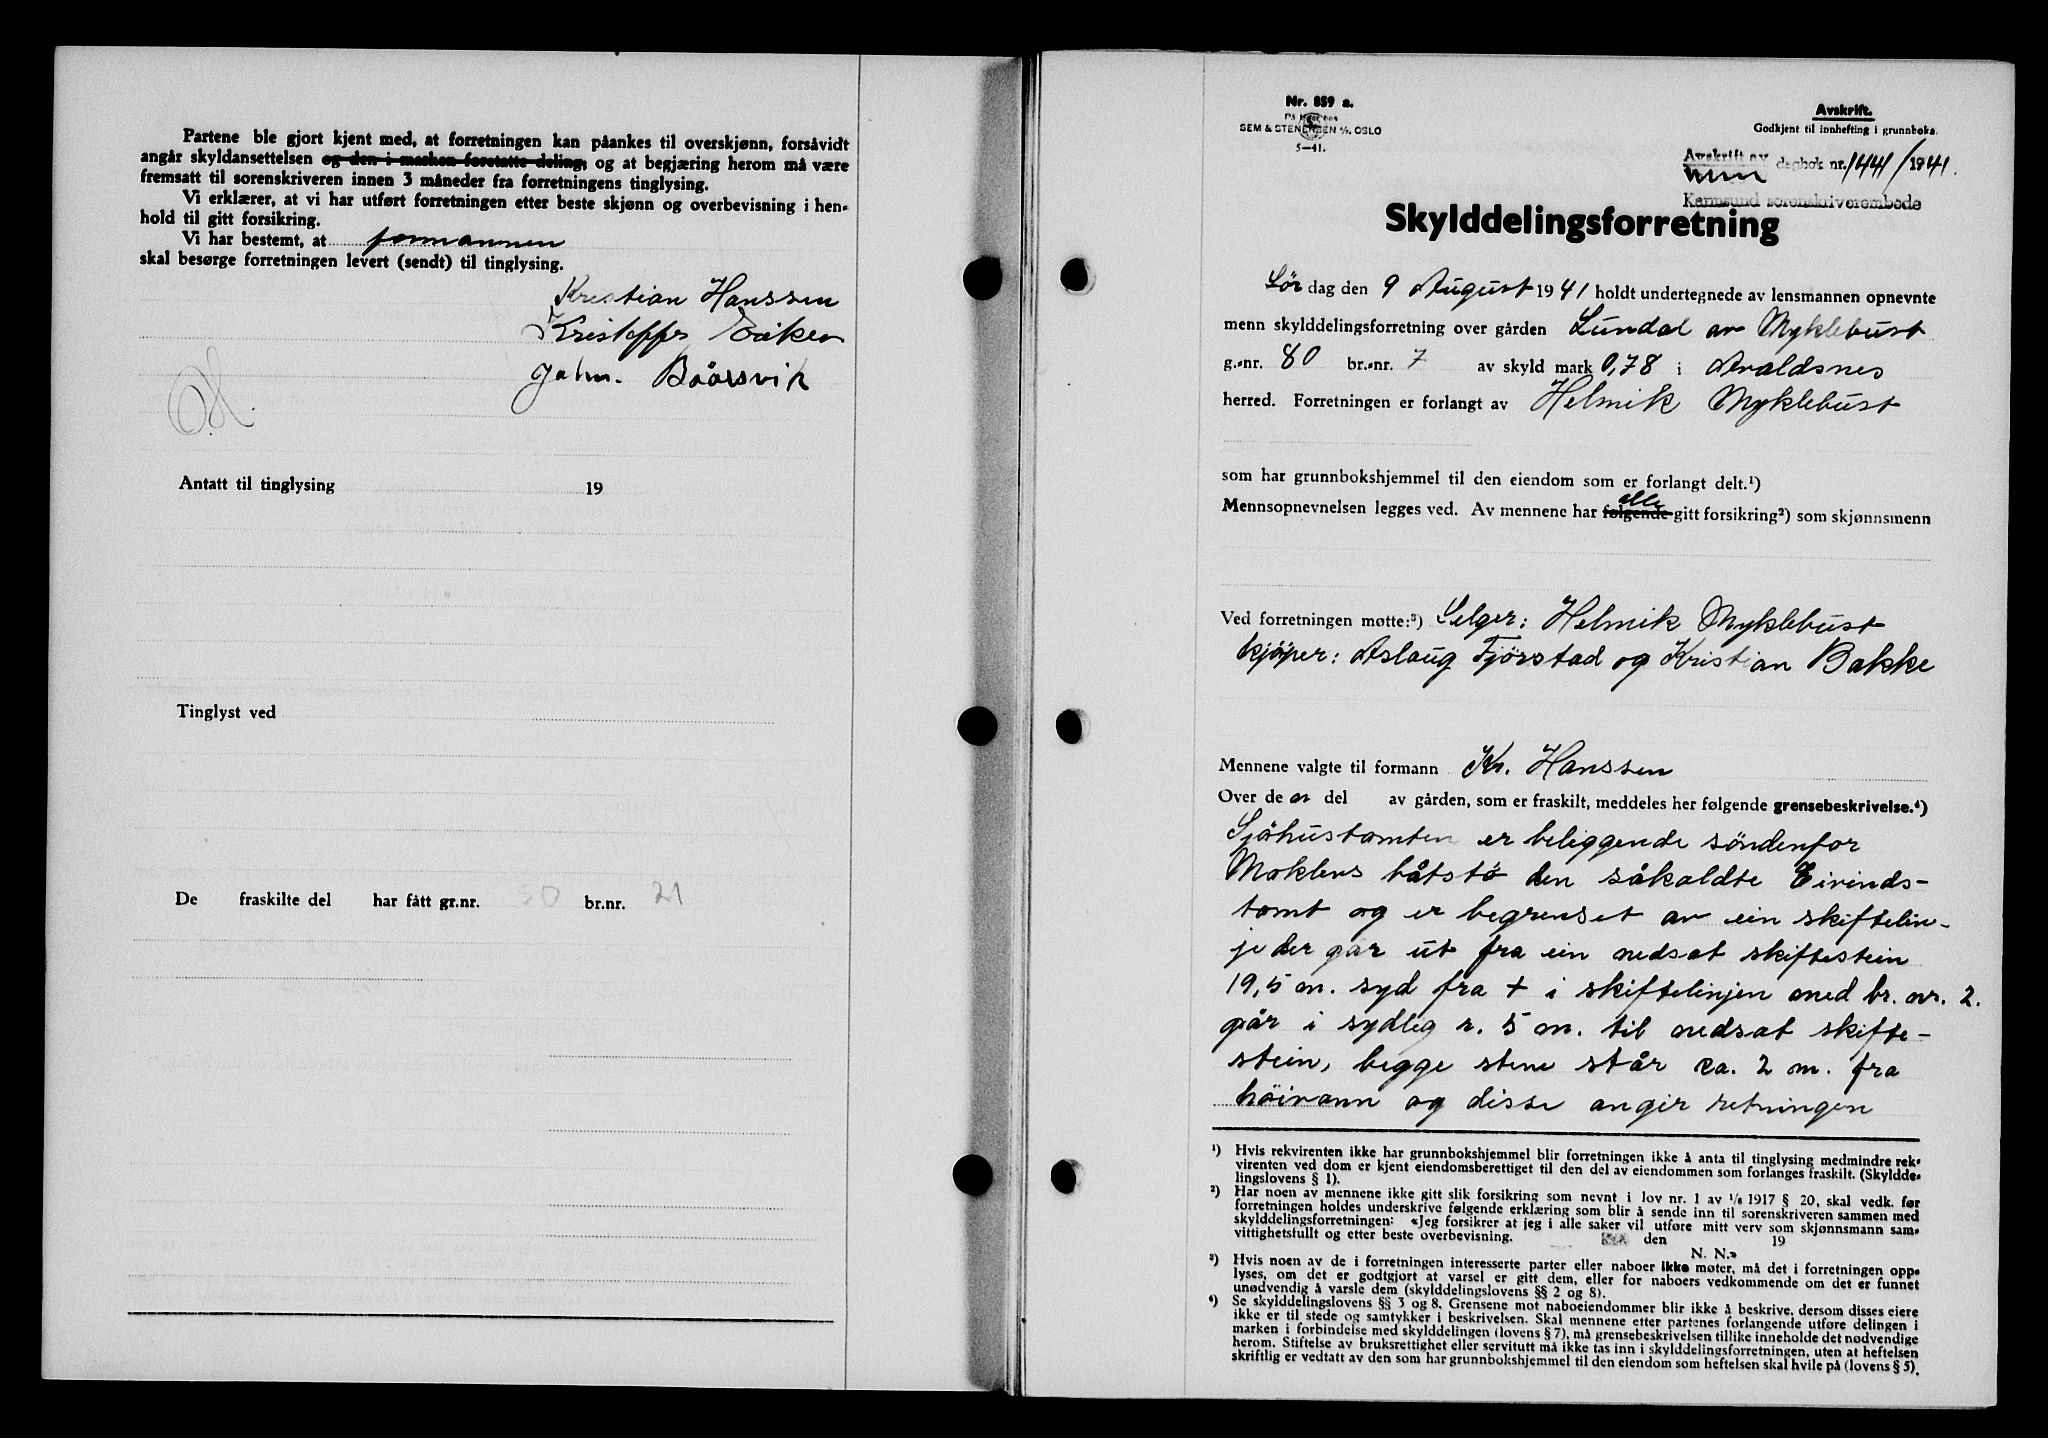 Partene ble gjort kjent med, at forretningen kan påankes til overskjønn, forsåvidt
angår skyldansettelsen og den i marken foretatte deling, og at begjæring herom må være
fremsatt til sorenskriveren innen 3 måneder fra forretningens tinglysing.
Vi erklærer, at vi har utført forretningen etter beste skjønn og overbevisning i hen-
hold til gitt forsikring.
Vi har bestemt, at formannen
skal besørge forretningen levert (sendt) til tinglysing.
Kristian Hanssen
Kristoffer Eriksen
John. Båårsvik
Antatt til tinglysing 19
Tinglyst ved
De fraskilte del har fått gr.nr. 80 br.nr. 21
Nr. 859 a.
SEM & STENERSEN A/S, OSLO
5—41.
Avskrift.
Godkjent til innhefting i grunnboka.
Avskrift av dagbok nr. 1441/1941.
Karmsund sorenskriverembede
Skylddelingsforretning
Lør dag den 9 August 1941 holdt undertegnede av lensmannen opnevnte
menn skylddelingsforretning over gården Lundal av Myklebust
g.-nr. 80 br.-nr. 7 av skyld mark 0,78 i Avaldsnes
herred. Forretningen er forlangt av Helmik Myklebust
som har grunnbokshjemmel til den eiendom som er forlangt delt.¹)
alle
Mennsopnevnelsen legges ved. Av mennene har følgende gitt forsikring²) som skjønnsmenn
Ved forretningen møtte:³) Selger: Helmik Myklebust
kjøper: Aslaug Fjørstad og Kristian Bakke
Mennene valgte til formann Kr. Hanssen
Over de n del av gården, som er fraskilt, meddeles her følgende grensebeskrivelse.⁴)
Sjøhustomten er beliggende søndenfor
Moklers båtstø den såkaldte Eivinds-
tomt og er begrenset av ein skiftelin-
je der går ut fra ein nedsat skiftestein
19,5 m. syd fra + i skiftelinjen med br. nr. 2.
går i sydlig r. 5 m. til nedsat skifte-
stein, begge stene står ca. 2 m. fra
høivann og disse angir retningen
¹) Hvis rekvirenten ikke har grunnbokshjemmel blir forretningen ikke å anta til tinglysing medmindre rek-
virenten ved dom er kjent eiendomsberettiget til den del av eiendommen som forlanges fraskilt. (Skyldde-
lingslovens § 1).
²) Har noen av mennene ikke gitt slik forsikring som nevnt i lov nr. 1 av ¹/₆ 1917 § 20, skal vedk. før
forretningen holdes underskrive følgende erklæring som blir å sende inn til sorenskriveren sammen med
skylddelingsforretningen: «Jeg forsikrer at jeg i alle saker vil utføre mitt verv som skjønnsmann sam-
vittighetsfullt og etter beste overbevisning. den 19
N. N.»
³) Hvis noen av de i forretningen interesserte parter eller naboer ikke møter, må det i forretningen opp-
lyses, om det er godtgjort at varsel er gitt dem, eller for naboers vedkommende om det er funnet
unødvendig å varsle dem (skylddelingslovens §§ 2 og 8).
⁴) Se skylddelingslovens §§ 3 og 8. Grensene mot naboeiendommer blir ikke å beskrive, dersom disses eiere
ikke er til stede og samtykker i beskrivelsen. Skal mennene etter partenes forlangende utføre delingen i
marken i forbindelse med skylddelingen (lovens § 7), må grensebeskrivelsen tillike inneholde det nødvendige
herom. Stiftelse av bruksrettighet eller servitutt må ikke tas inn i skylddelingsforretningen, uten at heftelsen
skriftlig er vedtatt av den som har grunnbokshjemmel til den eiendom som heftelsen skal hvile på (lovens § 5).